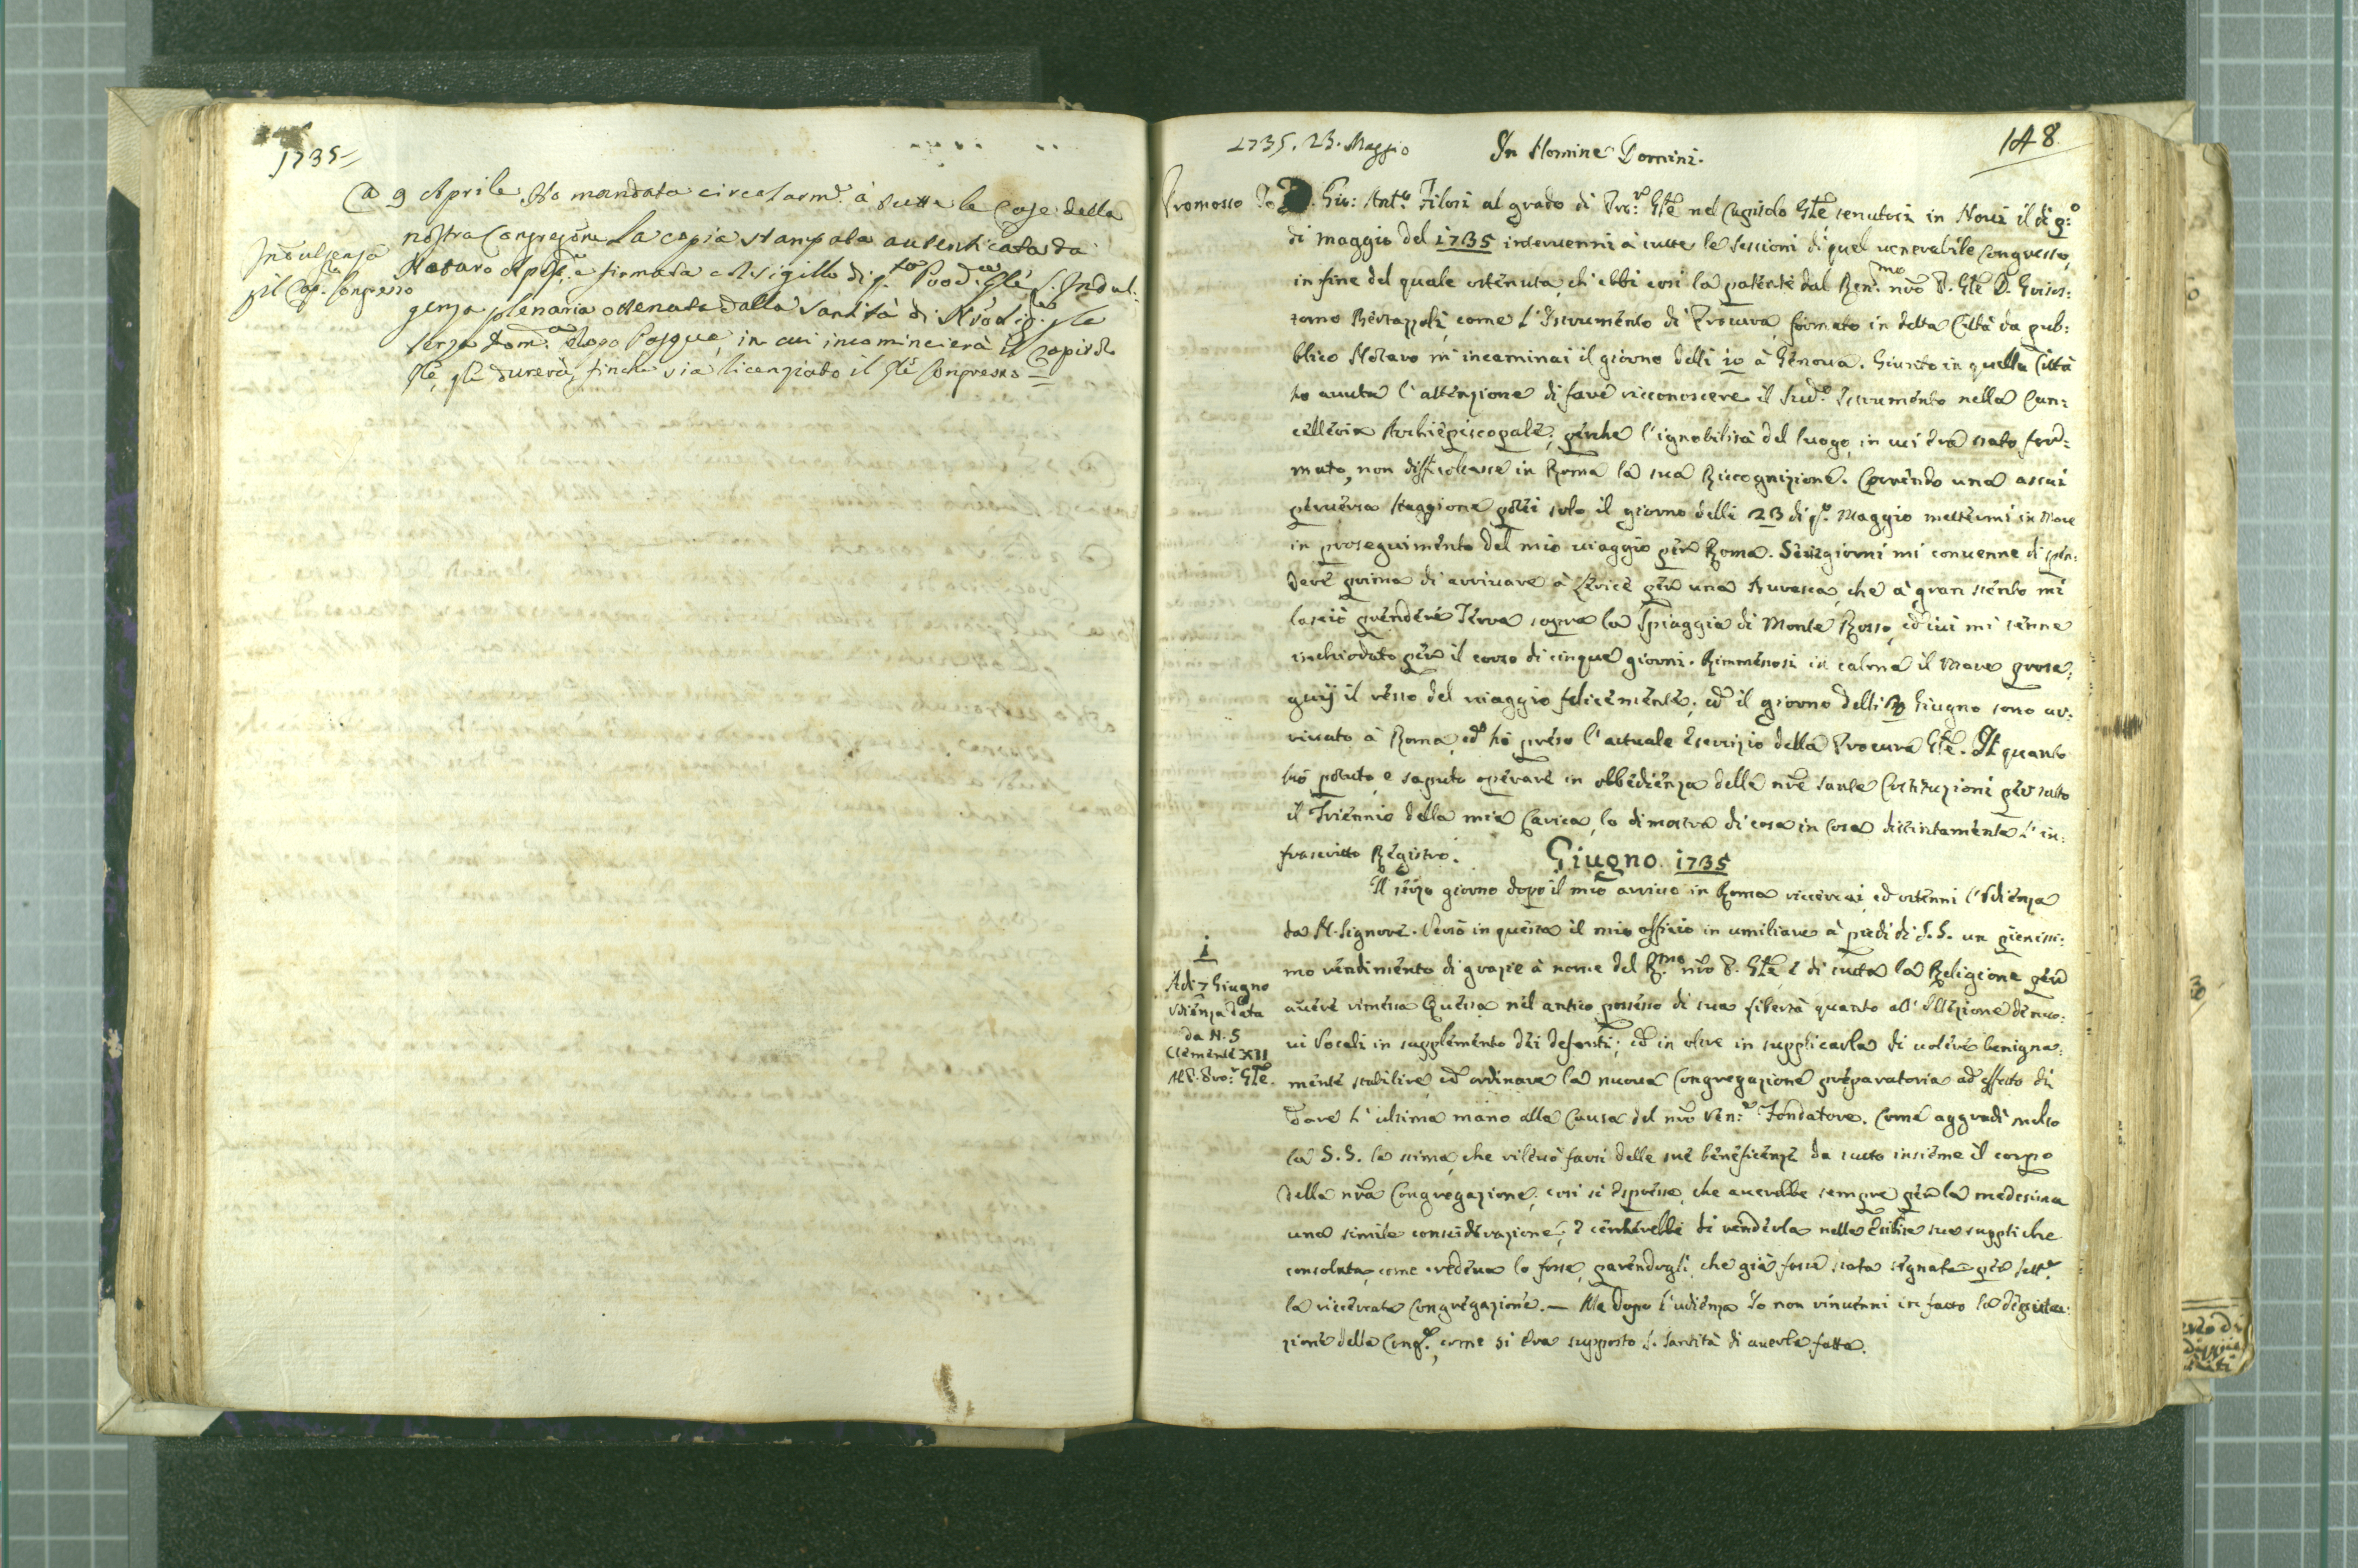 1735
A 9 Aprile Ho mandata circolarm.e à tutte le Case della
nostra Congreg.ōne la copia stampata autenticata da
Notaro Ap̄p.co e firmata col sigillo di q.to Proc.re Glē l'Indul:
genza plenaria ottenuta dalla Santità di Nrō Sig.re p̄ la
terza Dom.ca dopo Pasqua, in cui incomincierà il Capitolo
Glē, durerà, finche sia licenziato il Glē Congresso
Indulgenza
p̄ il Cap. Congresso
1735. 23. Maggio In Nomine Domini. 148
Promosso Io D. Gio: Ant.o Filosi al grado di Pro:re Gēe nel Capitolo Gēe tenutosi in Novi il dì p:o
di Maggio del 1735 intervenni à tutte le sessioni di quel venerabile Congresso,
in fine del quale ottenuta, ch'ebbi così la patente dal Ren.mo nrō P. Gēe D. Grisos:
tomo Bertazzoli, come l'Istrumento di Procura formato in detta Città da pub:
blico Notaro m'incaminai il giorno delli 10 à Genova. Giunto in quella Città
ho avuta l'attenzione di fare ricconoscere il Sud.o Istrumento nella Can:
celleria Archiepiscopale, perche l'ignobilità del luogo, in cui era stato for:
mato, non difficoltasse in Roma la sua Riccognizione. Correndo una assai
perversa staggione potei solo il giorno delli 23 di p.o Maggio mettermi in Mare
in proseguimento del mio viaggio per Roma. Sette giorni mi convenne di spen:
dere prima di arrivare à Lerice per una Burasca, che à gran stento mi
lasciò prendere Terra sopra la Spiaggia di Monte Rosso, ed ivi mi tenne
inchiodato per il corso di cinque giorni. Rimmessosi in calma il Mare prose:
guij il resto del viaggio felicemente, ed il giorno delli Giugno sono ar:
rivato à Roma, ed hò preso l'attuale Esercizio della Procura Gēe. Il quanto
hò potuto, e saputo operare in obbedienza delle nrē sante Costituzioni per tutto
il Triennio della mia Carica, lo dimostra di cosa in cosa distintamente l'in:
frascritto Registro.
Giugno 1735
Il terzo giorno dopo il mio arrivo in Roma riccercai, ed ottenni l'Udienza
da N. Signore. Versò in questa il mio officio in umiliare à piedi di S. S. un pienissi:
mo rendimento di grazie à nome del R.mo nrō P. Gēe, e di tutta la Religione per
avere rimessa Questa nel antico possesso di sua libertà quanto all'Ellezione de nuo:
vi Vocali in supplemento dei defonti; ed in oltre in supplicarla di volere benigna:
mente stabilire, ed ordinare la nuova Congregazione preparatoria ad effetto di
dare l'ultima mano alla Causa del nrō Ven:e Fondatore. Come aggradì molto
la S. S. la stima, che rilevò farsi delle sue beneficenze da tutto insieme il corpo
della nrā Congregazione; così si espresse, che averebbe sempre per la medesima
una simile considerazione; e di renderla nelle sue suppliche
consolata, come credeva lo fosse, parendogli, che già fosse stata segnata per
la riccercata Congregazione. — Ma dopo l'udienza Io non rinvenni in fatto la deputa:
zione della Cong.e, come si era supposto S. Santità di averla fatta.
1
Adi 7 Giugno
Udienza data
da N. S
Clemente XII
Al P. Pro:r Gēe.